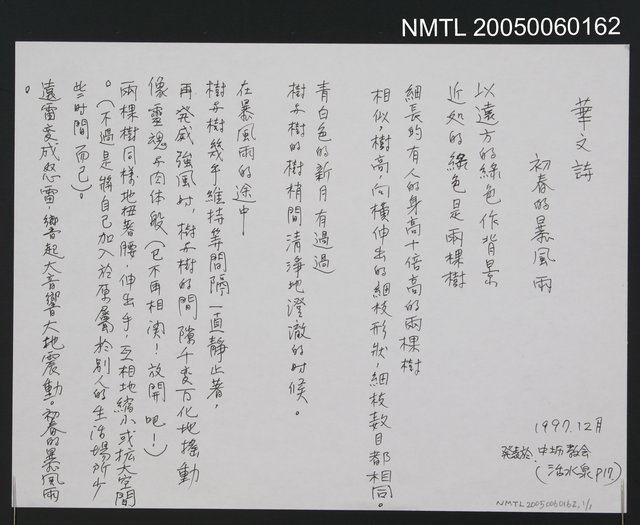 NMTL 20050060162
華文詩
初春的暴風雨
以遠方的綠色作背景
近処的綠色是兩棵樹
細長的有人的身高十倍高的兩棵樹
相似,樹高,向橫伸出的細枝形狀,細枝数目都相同。
青白色的新月有過過
樹与樹的樹梢間清淨地澄澈的时候。
在暴風雨的途中
樹与樹幾乎維持等間隔一直靜止著,
再発威強風时,樹与樹的間隙千变万化地搖動
像靈魂与肉体般(已不再相演!放開吧!)
兩棵樹同樣地扭著腰伸出手,互相地縮小或拡大空間
。(不過是將自己加入於原屬於別人的生活場所少
些时間而已)。
遠雷变成怒雷,響起大音響大地震動。初春的暴風雨
。
1997.12月
発表於 中坜教会
(活水泉P17)
NMTL20050060162, 1/1